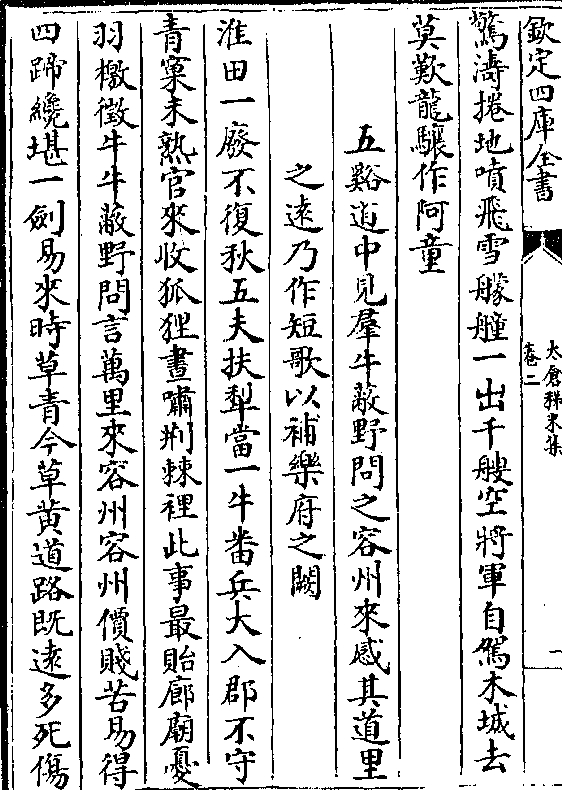 欽定四庫全書
太倉稊米集
卷二
一
驚濤捲地噴飛雪艨艟一出千艘空將軍自駕木城去
莫歎龍驤作阿童
五谿道中見羣牛蔽野問之容州來感其道里
之遠乃作短歌以補樂府之闕
淮田一廢不復秋五夫扶犁當一牛畨兵大入郡不守
青窠未熟官來收狐狸晝嘯荆棘裡此事最貽廊廟憂
羽檄徵牛牛蔽野問言萬里來容州容州價賤苦易得
四蹄纔堪一劍易來時草青今草黄道路既逺多死傷